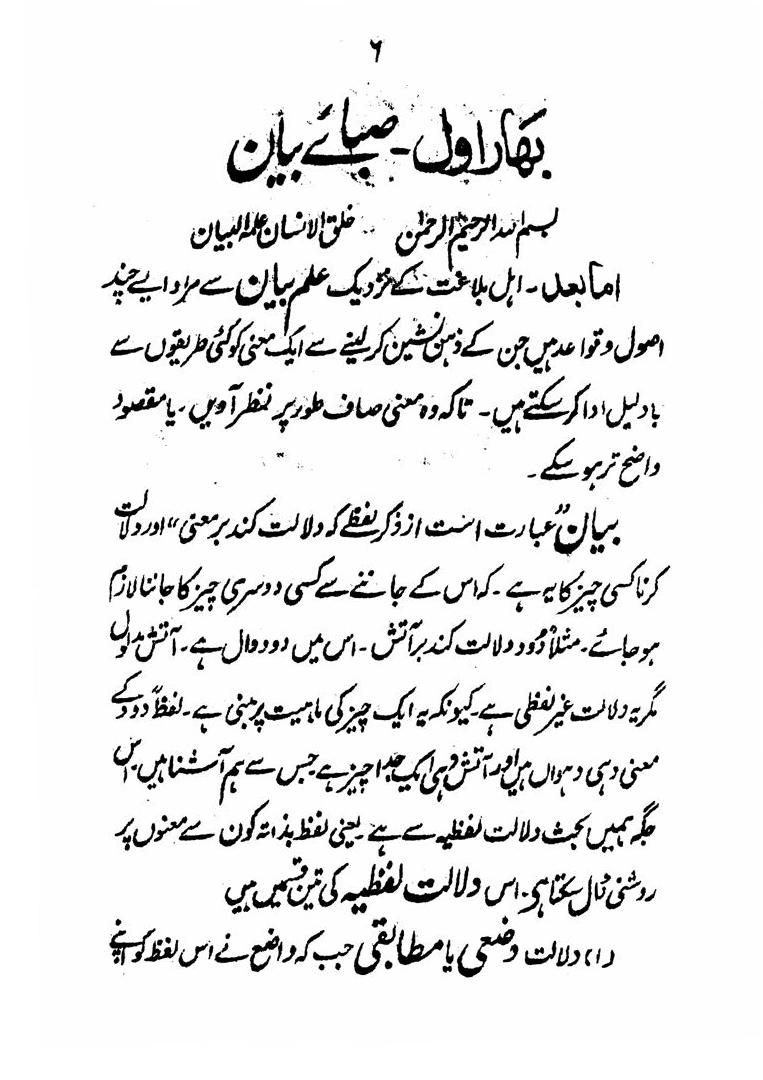 ٦
بہار اول - صہبائے بیان
بسم اللہ الرحیم الرحمٰن .. خلق الانسان علمہ البیان
اما بعد - اہل بلاغت کے نزدیک علم بیان سے مراد ایسے چند
اصول و قواعد ہیں جن کے ذہن نشین کر لینے سے ایک معنی کو کئی طریقوں سے
با دلیل ادا کر سکتے ہیں - تاکہ وہ معنی صاف طور پر نظر آویں - یا مقصود
واضح تر ہو سکے -
بیان "عبارت است از ذکر لفظے کہ دلالت کند بر معنی" اور دلالت
کرنا کسی چیز کا یہ ہے - کہ اس کے جاننے سے کسی دوسری چیز کا جاننا لازم
ہو جائے - مثلاً دُود دلالت کند بر آتش - اس میں دود دال ہے - آتش مدلول
مگر یہ دلالت غیر لفظی ہے - کیونکہ یہ ایک چیز کی ماہیت پر مبنی ہے - لفظ "دود" کے
معنی وہی دھواں ہیں اور آتش وہی ایک جدا چیز ہے جس سے ہم آشنا ہیں - اس
جگہ ہمیں بحث دلالت لفظیہ سے ہے - یعنی لفظ بذاتہ کون سے معنوں پر
روشنی ڈال سکتا ہی - اس دلالت لفظیہ کی تین قسمیں ہیں
(۱) دلالت وضعی یا مطابقی جب کہ واضع نے اس لفظ کو اپنے